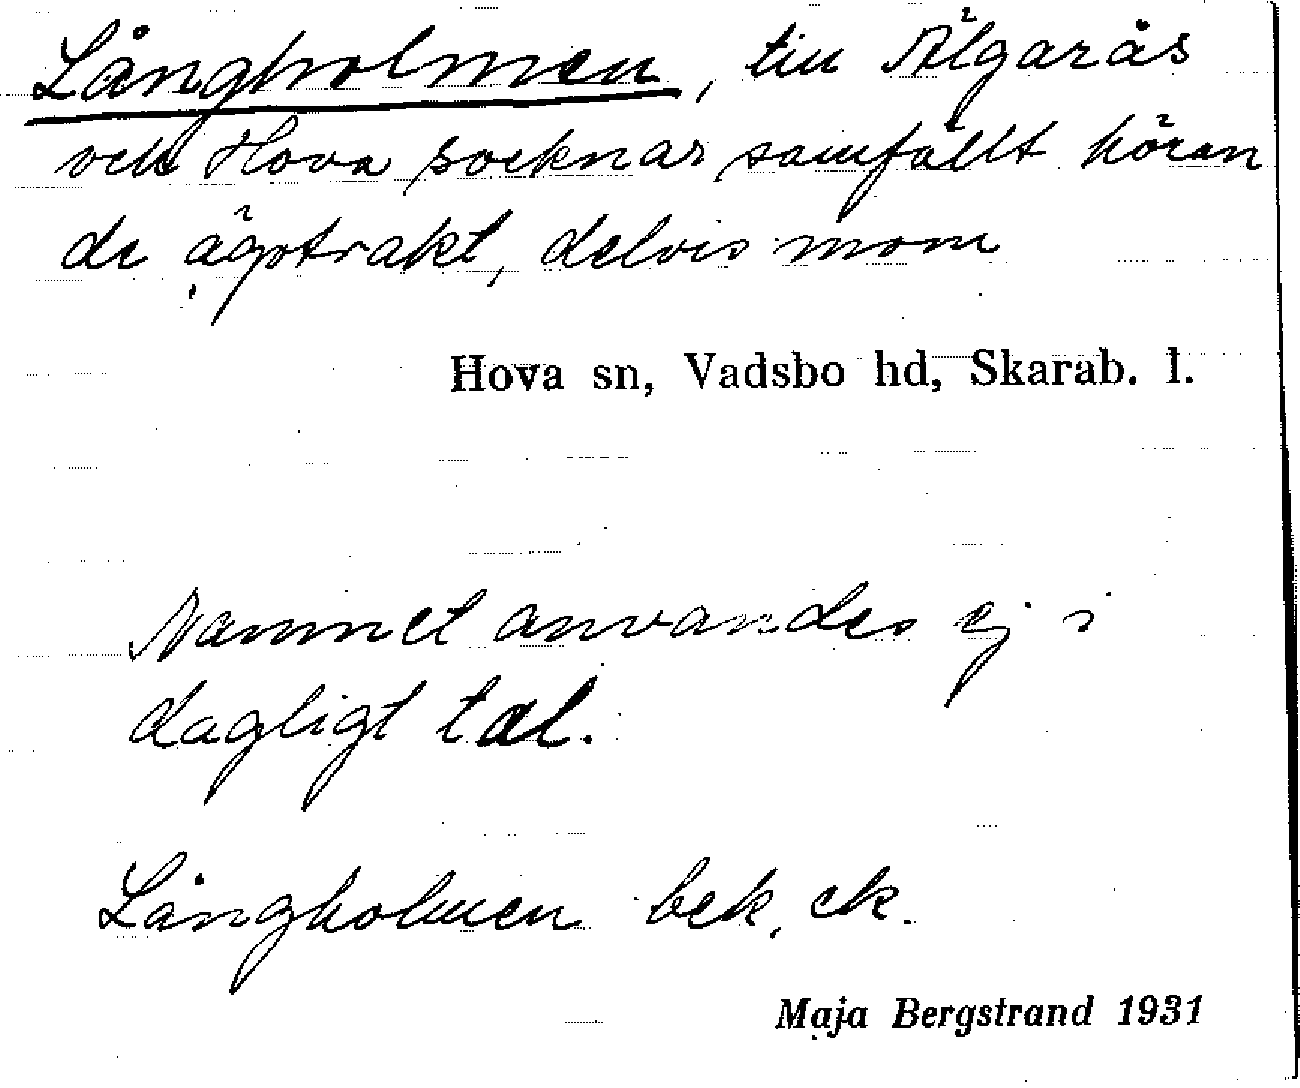 Långholmen, till Älgarås
och Hova socknar samfällt höran
de ägotrakt, delvis inom
Hova sn, Vadsbo hd, Skarab. l.
Namnet användes ej i
dagligt tal.
Långholmen bek. ek.
Maja Bergstrand 1931